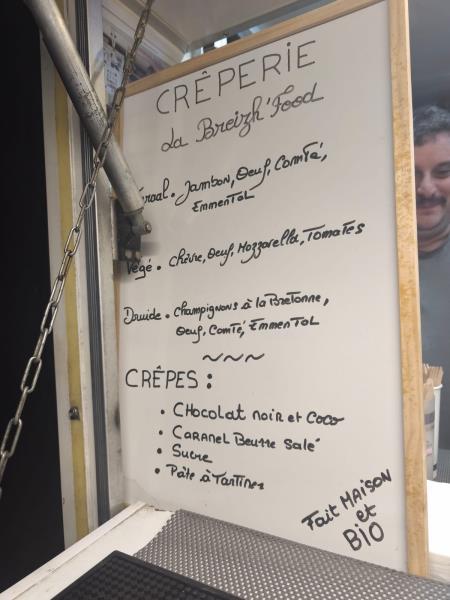 CRÊPERIE
La Breizh'Food
Jambon, Oeuf, Comté,
Emmental
Végé • Chèvre, Oeuf, Mozzarella, Tomates
Druide • Champignons à la Bretonne,
Oeuf, Comté, Emmental
CRÊPES :
• CHOCOLAT noir et coco
• CARAMEL Beurre salé
• Sucre
• Pâte à Tartiner
Fait MAISON
et
BIO